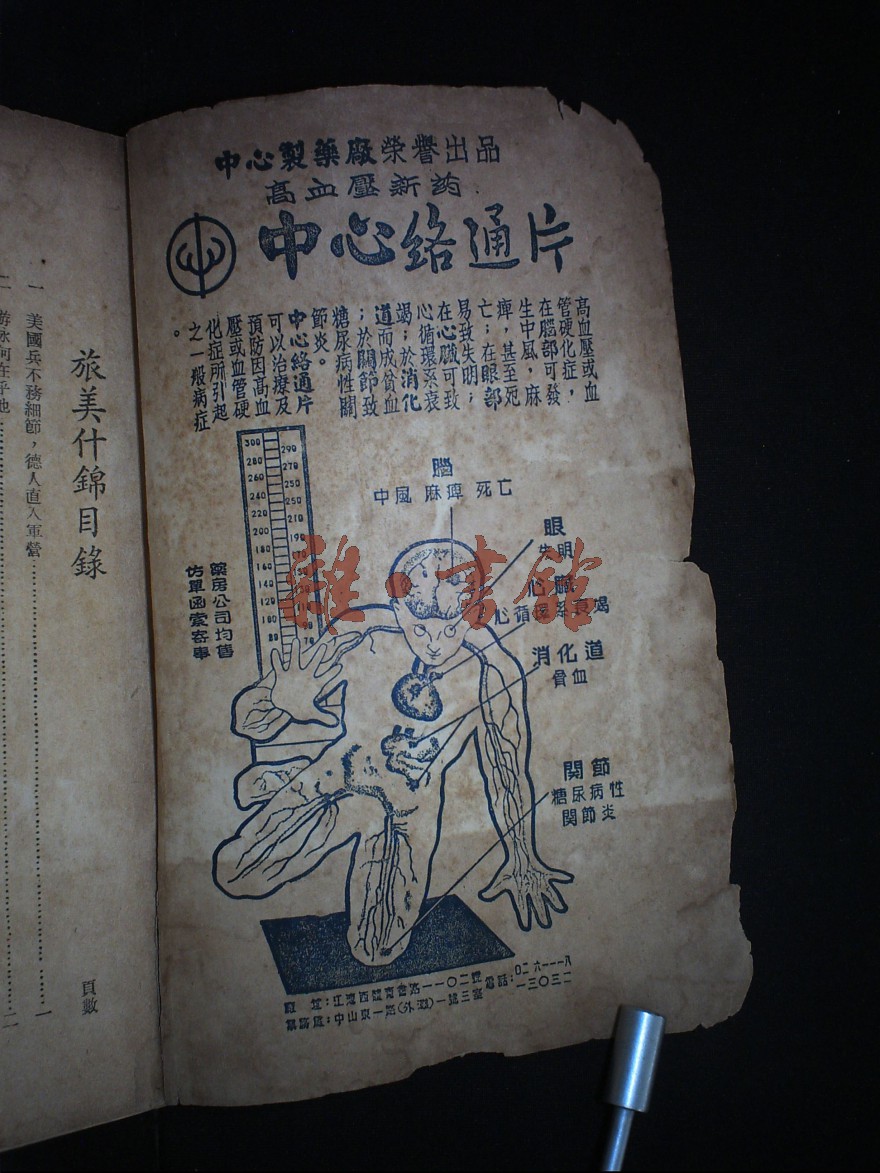 中心製藥廠榮譽出品
高血壓新药
中心絡通片
高血壓或血
管硬化症，
在腦部可發
生中風，麻
痺，甚至死
亡；在眼部
易致失明；
在心臟可致
心循環系衰
竭；於消化
道而成貧血
；於關節致
糖尿病性關
節炎。
中心絡通片
可以治療及
預防因高血
壓或血管硬
化症所引起
之一般病症
。
300
290
280
270
260
250
240
220
210
200
190
180
170
160
140
120
100
90
80
70
腦
中風 麻痺 死亡
眼
失明
心臟
心循環系衰竭
消化道
骨血
関節
糖尿病性
関節炎
藥房公司均售
仿單函索寄奉
中山東一路(外灘)一號三室
一三〇三二
旅美什錦目錄
頁數
一 美國兵不務細節，德人直入軍營 一
二
雜·書館